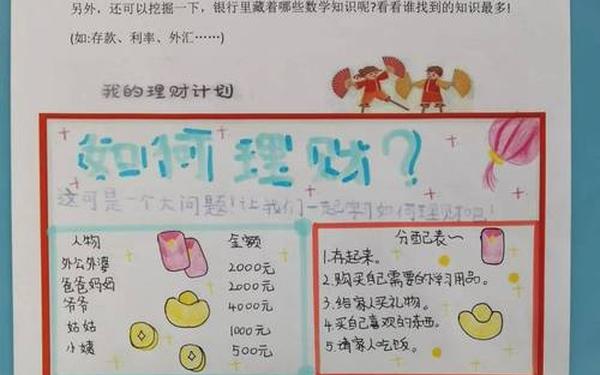 另外，还可以挖掘一下，银行里藏着哪些数学知识呢?看看谁找到的知识最多!
(如:存款、利率、外汇……)
我的理财计划
如何理财?
这可是一个大问题!让我们一起学习如何理财吧!
人物 金额
外公外婆 2000元
爸爸妈妈 2000元
爷爷 4000元
姑姑 1000元
小姨 500元
分配表~
1.存起来。
2.购买自己需要的学习用品。
3.给家人买礼物。
4.买自己喜欢的东西。
5.请家人吃饭。